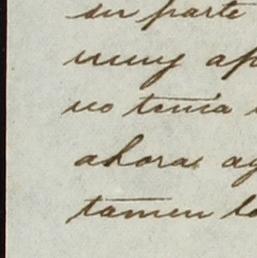 su parte
muy ap
no tenia
ahora ag
tamen lo